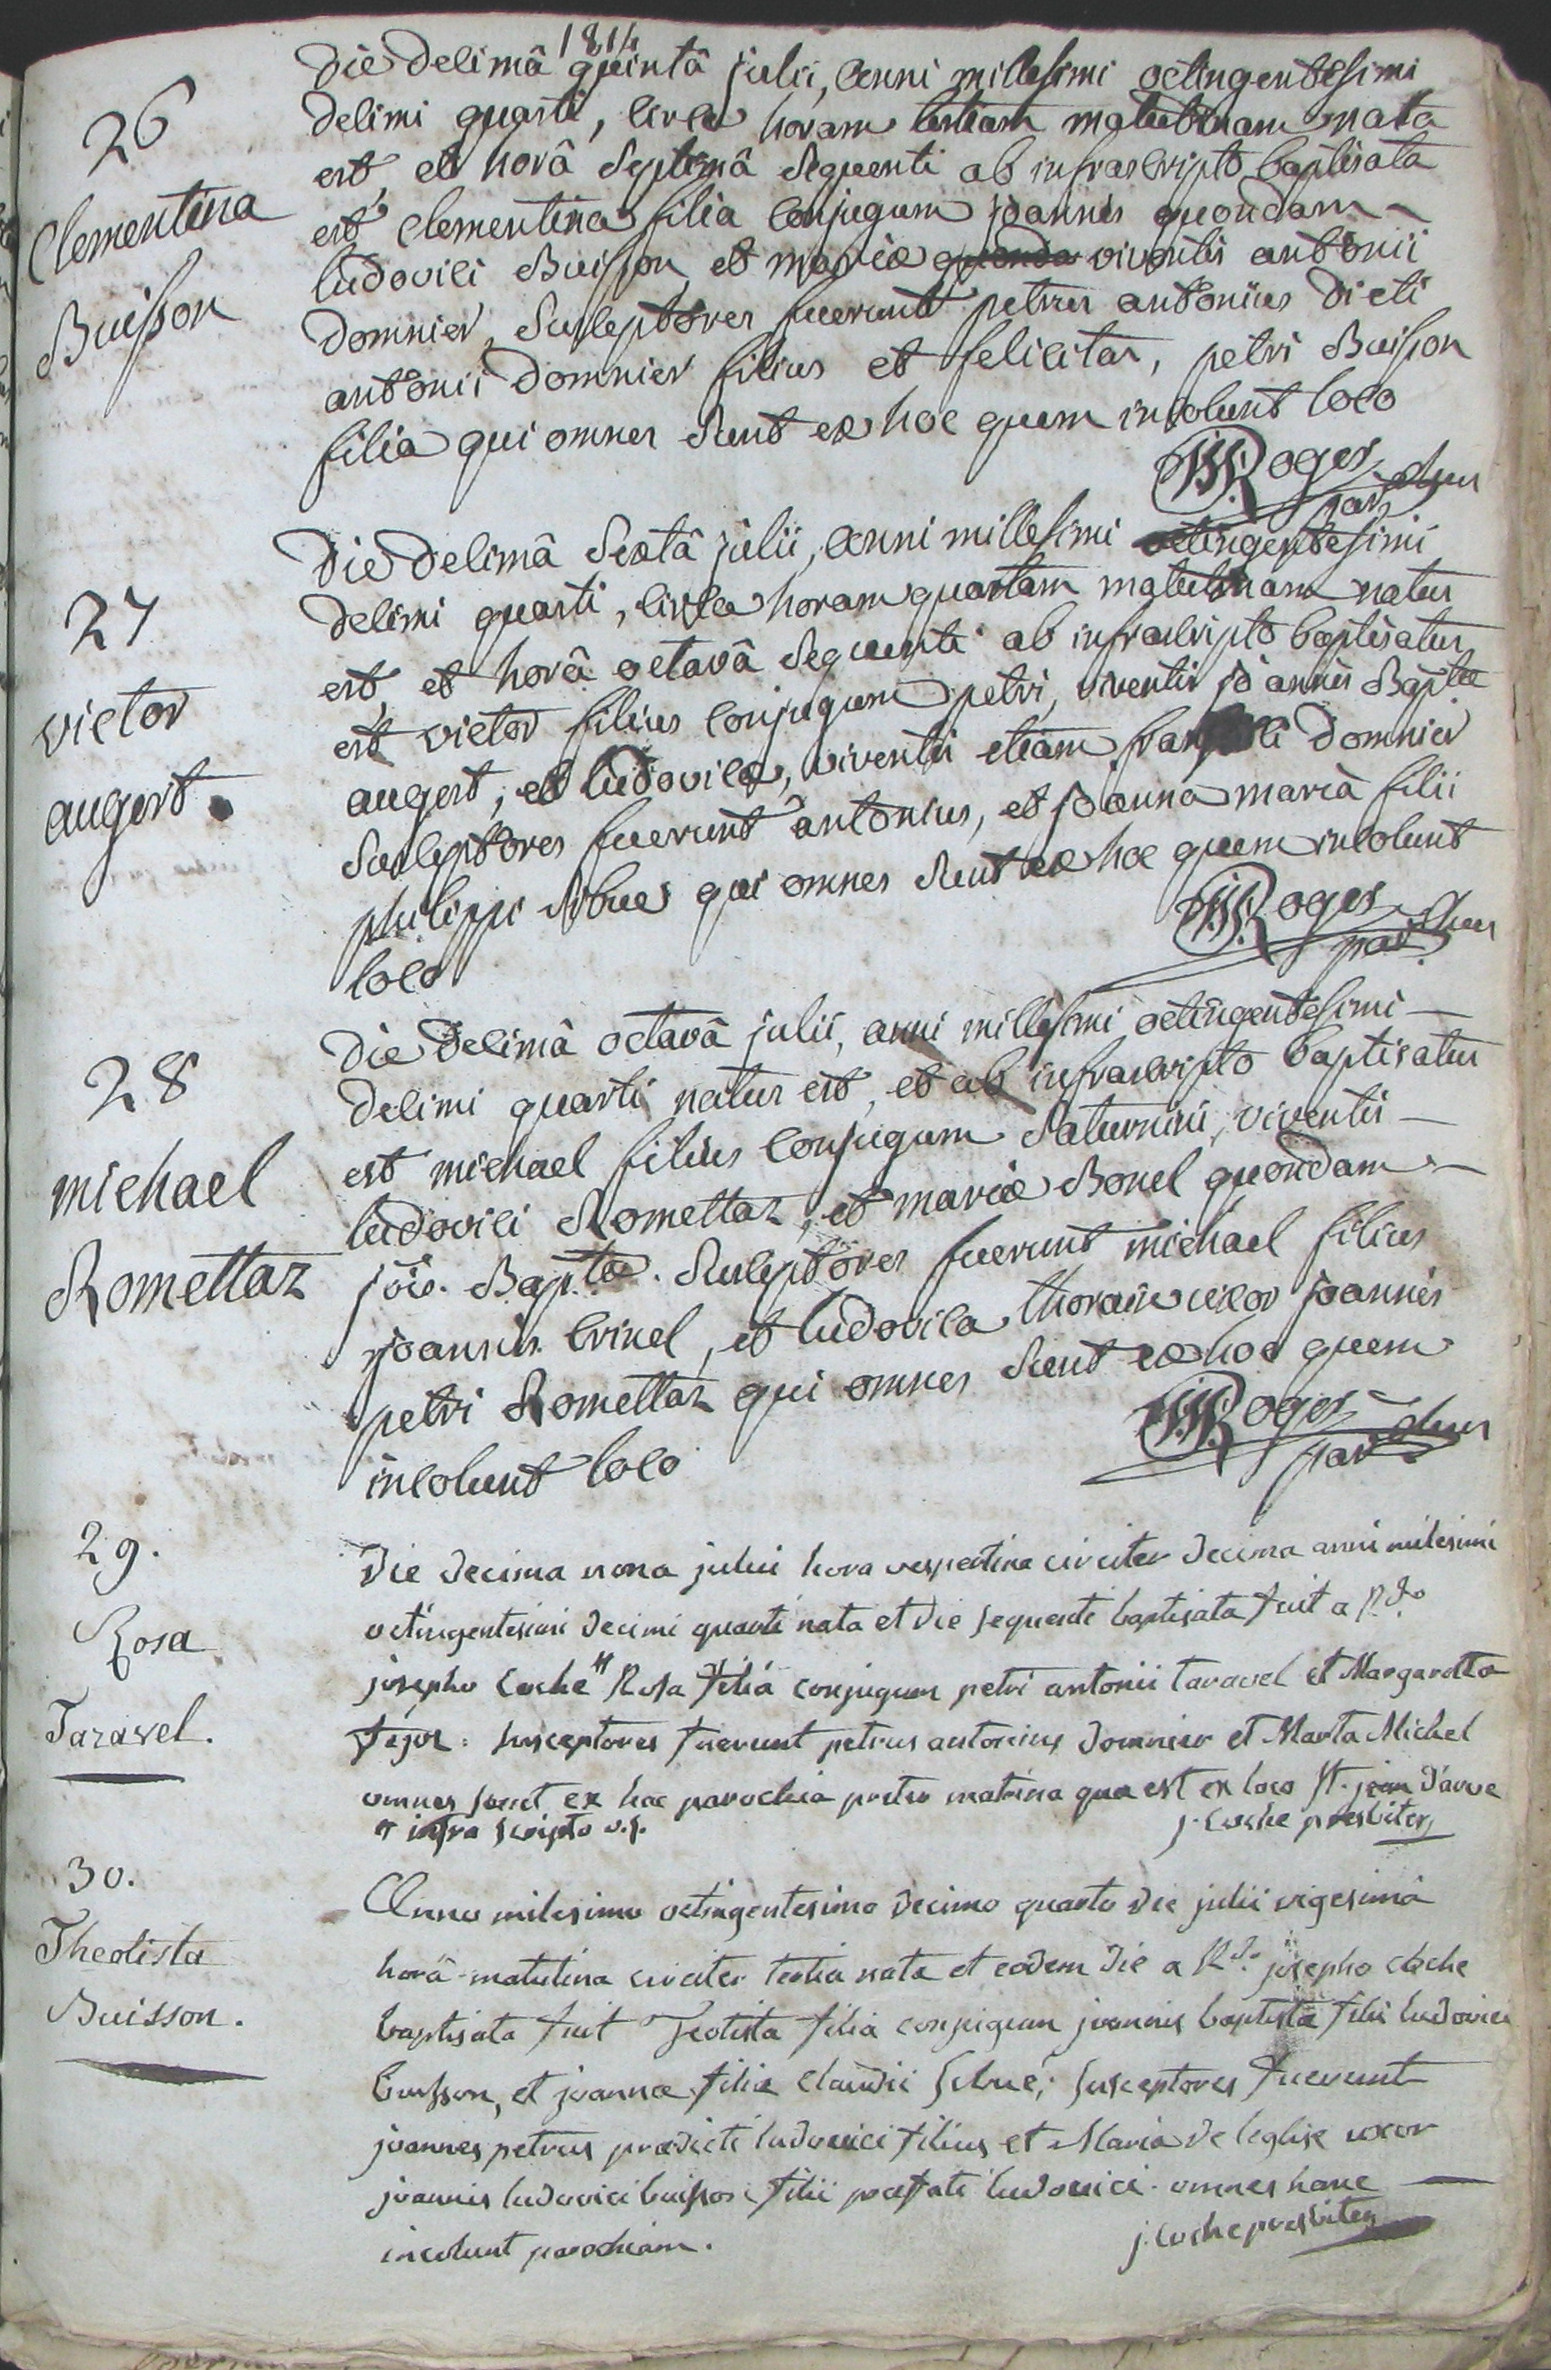 1814
26
Clementina
Buisson
Die decimâ quintâ julii, anni millesimi octingentesimi
decimi quarti, circa horam tertiam matutinam nata
est, et horâ septimâ sequenti ab infrascripto baptisata
est clementina filia conjugum joannis quondam
ludovici Buisson, et mariæ quonda viventis antonii
domnier, susceptores fuerunt petrus antonius dicti
antonii domnier filius et felicitas, petri Buisson
filia qui omnes sunt ex hoc quem incolunt loco
JBRoges par. chus
27
victor
augert.
Die decimâ sextâ julii, anni millesimi octingentesimi
decimi quarti, circa horam quartam matutinam natus
est, et horâ octavâ sequenti ab infrascripto baptisatus
est victor filius conjugum petri, viventis joannis Baptæ
augert, et ludovicæ, viventis etiam domnier
susceptores fuerunt antonius, et joanna maria filii
philippi sibué qui omnes sunt ex hoc quem incolunt
loco
JBRoges par. chus
28
michael
Romettaz
Die decimâ octavâ julii, anni millesimi octingentesimi
decimi quarti natus est, et ab infrascripto baptisatus
est michael filius conjugum saturnini, viventis
ludovici Romettaz, et mariæ Bonel quondam
jois. Baptæ. susceptores fuerunt michael filius
joannis crinel, et ludovica uxor joannis
petri Romettaz qui omnes sunt ex hoc quem
incolunt loco
JBRoges par. chus
29.
Rosa
Taravel.
Die decima nona julii hora vespertina circiter decima anni milesimi
octingentesimi decimi quarti nata et die sequente baptisata fuit a R.do
josepho coche # Rosa filia conjugum petri antonii taravel et Margarotta
: susceptores fuerunt petrus antonius domnier et Marta Michel
omnes sunt ex hac parochia preter matrina qua est ex loco St. jean d'arve
# infra scripto
j. coche presbiter
30.
Theotista
Buisson.
Anno milesimo octingentesimo decimo quarto die julii vigesima
horâ matutina circiter tertia nata et eodem die a R.do josepho coche
baptisata fuit Teotista filia conjugum joannis baptista filii ludovici
buisson, et joannæ filiæ claudii sibué; susceptores fuerunt
joannes petrus prædicti ludovici filius et Maria de leglise uxor
joannis ludovici buisson filii præfati ludovici. omnes hanc
incolunt parochiam.
j. coche presbiter